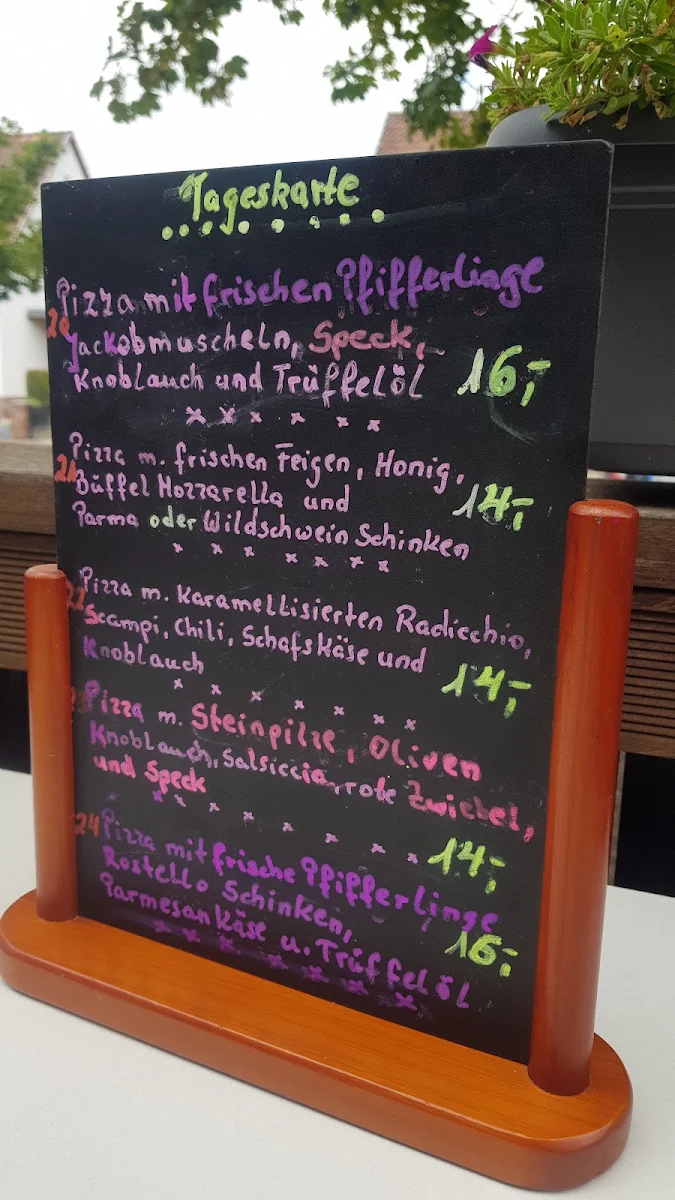 Tageskarte
Pizza mit frischen Pfifferlinge
20 Jackobmuscheln, Speck,
Knoblauch und Trüffelöl 16,-
Pizza m. frischen Feigen, Honig,
21 Büffel Mozzarella und 14,-
Parma oder Wildschwein Schinken
Pizza m. Karamellisierten Radicchio,
22 Scampi, Chili, Schafskäse und
Knoblauch 14,-
23 Pizza m. Steinpilze, Oliven
Knoblauch, Salsiccia, rote Zwiebel,
und Speck
14,-
24 Pizza mit frische Pfifferlinge
Rostello Schinken,
Parmesankäse u. Trüffelöl 16,-